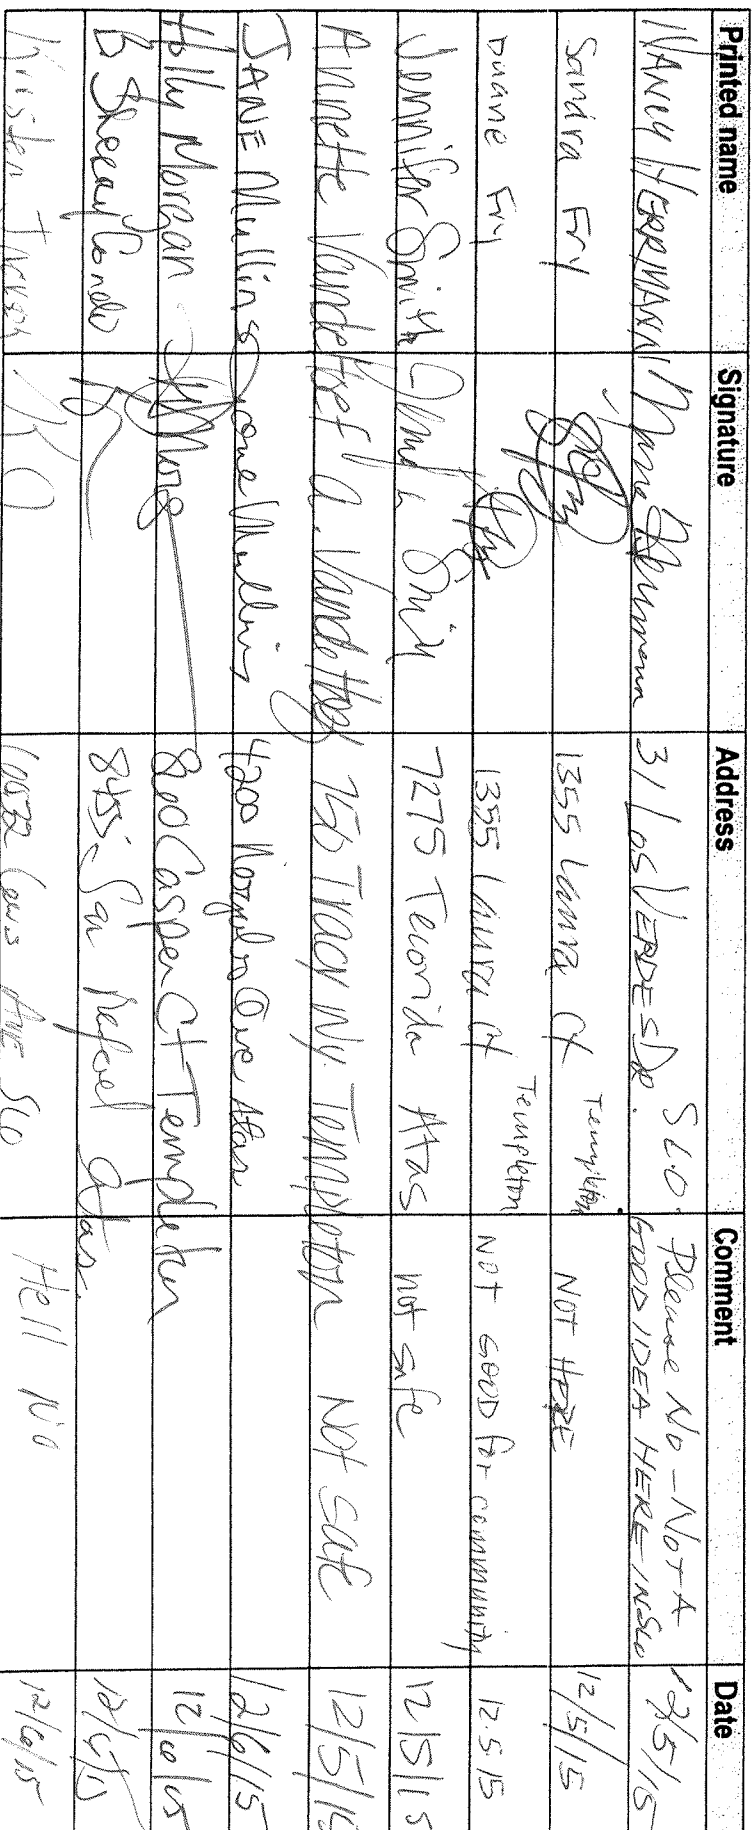 Printed name Signature Address Comment Date
NANCY HERRMANN Nancy Herrmann 31 LOS VERDES DR. S.L.O. Please No - NOT A GOOD IDEA HERE IN SLO 12/5/15
Sandra Fry 1355 Laura Ct Templeton NOT HERE 12/5/15
Duane Fry 1355 Laura Ct Templeton NOT GOOD for community 12.5.15
Jennifer Smith 7275 Tecorida Atas not safe 12/5/15
Annette Vanderhoef A. Vanderhoef 756 Tracy Wy. Templeton Not safe 12/5/15
JANE Mullins Jane Mullins 4200 Ave Atas 12/6/15
Holly Morgan 800 Casper Ct Templeton 12/6/15
B 8455 San Rafael Atas. 12/6/15
Kristen Ave SLO Hell No 12/6/15